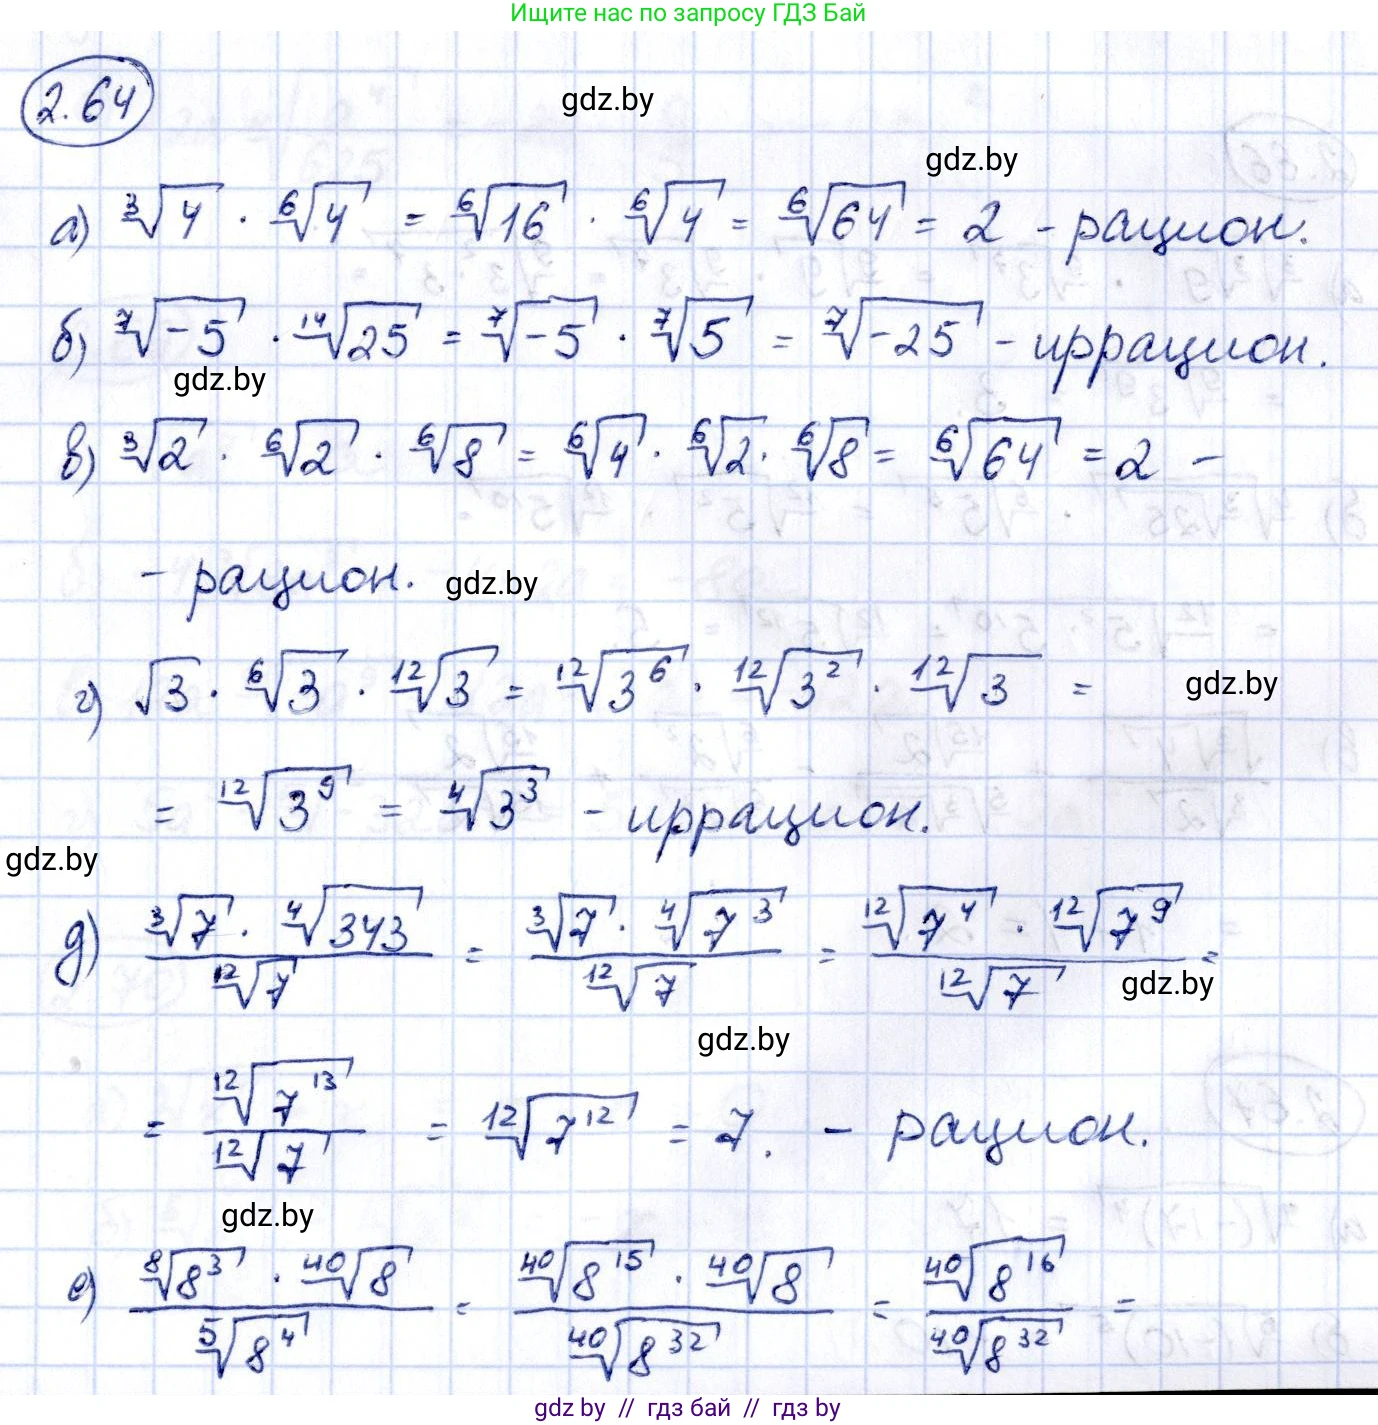 Ищите нас по запросу ГДЗ Бай
2.64
gdz.by
gdz.by
а) ∛4 · ⁶√4 = ⁶√16 · ⁶√4 = ⁶√64 = 2 - рацион.
б) ⁷√-5 · ¹⁴√25 = ⁷√-5 · ⁷√5 = ⁷√-25 - иррацион.
gdz.by
в) ∛2 · ⁶√2 · ⁶√8 = ⁶√4 · ⁶√2 · ⁶√8 = ⁶√64 = 2 -
- рацион. gdz.by
г) √3 · ⁶√3 · ¹²√3 = ¹²√3⁶ · ¹²√3² · ¹²√3 = gdz.by
= ¹²√3⁹ = ⁴√3³ - иррацион.
gdz.by
д) (∛7 · ⁴√343) / ¹²√7 = (∛7 · ⁴√7³) / ¹²√7 = (¹²√7⁴ · ¹²√7⁹) / ¹²√7 =
gdz.by
gdz.by
= ¹²√7¹³ / ¹²√7 = ¹²√7¹² = 7. - рацион.
gdz.by
е) (⁸√8³ · ⁴⁰√8) / ⁵√8⁴ = (⁴⁰√8¹⁵ · ⁴⁰√8) / ⁴⁰√8³² = ⁴⁰√8¹⁶ / ⁴⁰√8³² =
gdz.by // гдз бай // гдз by